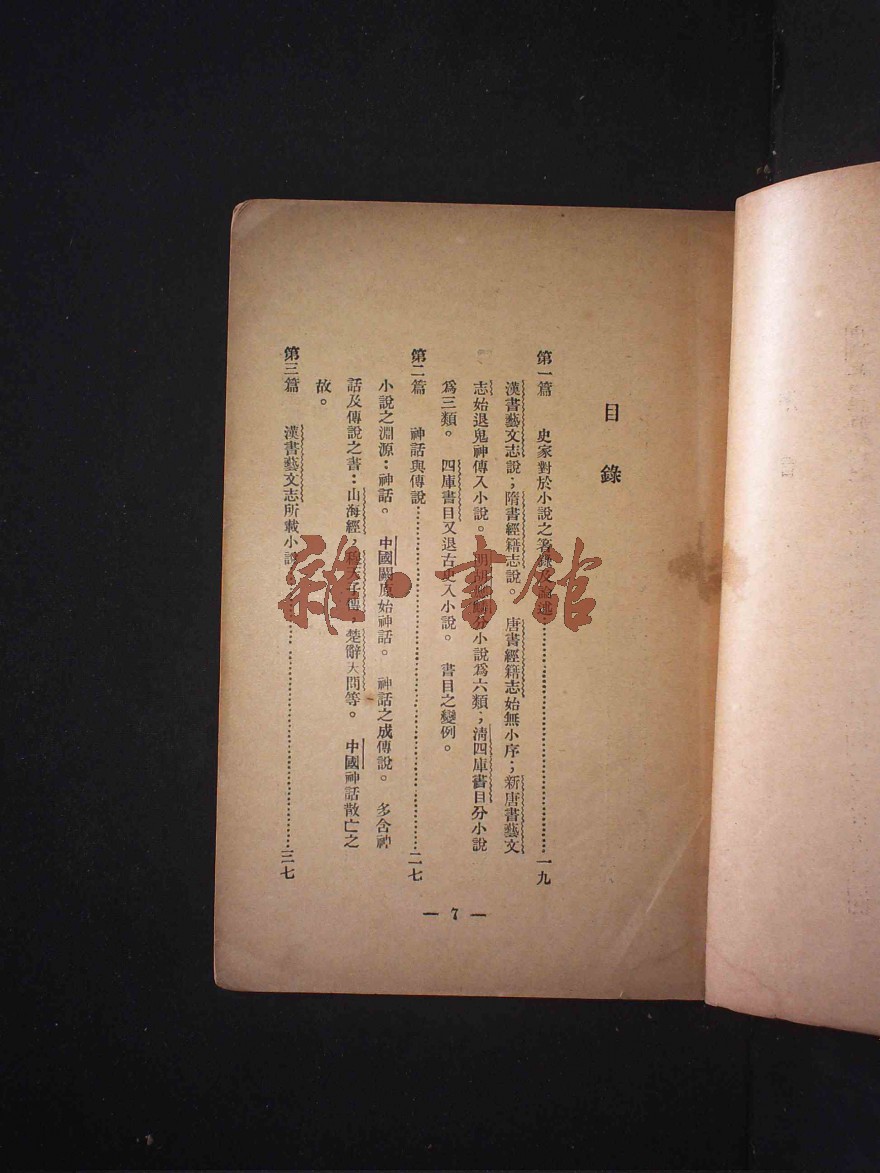 目錄
第一篇 史家對於小說之著錄及論述…………一九
漢書藝文志說；隋書經籍志說。 唐書經籍志始無小序；新唐書藝文
志始退鬼神傳入小說。 明胡應麟分小說爲六類；清四庫書目分小說
爲三類。 四庫書目又退古史入小說。 書目之變例。
第二篇 神話與傳說…………二七
小說之淵源：神話。 中國 原始神話。 神話之成傳說。 多含神
話及傳說之書：山海經，穆天子傳，楚辭天問等。 中國神話散亡之
故。
第三篇 漢書藝文志所載小說…………三七
— 7 —
雜·書館